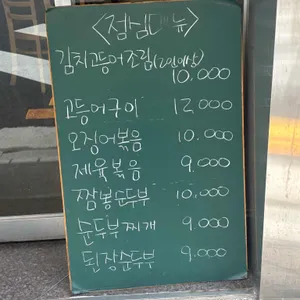 <점심메뉴>
김치고등어조림(2인이상)
10,000
고등어구이 12,000
오징어볶음 10,000
제육볶음 9,000
짬뽕순두부 10,000
순두부찌개 9,000
된장순두부 9,000